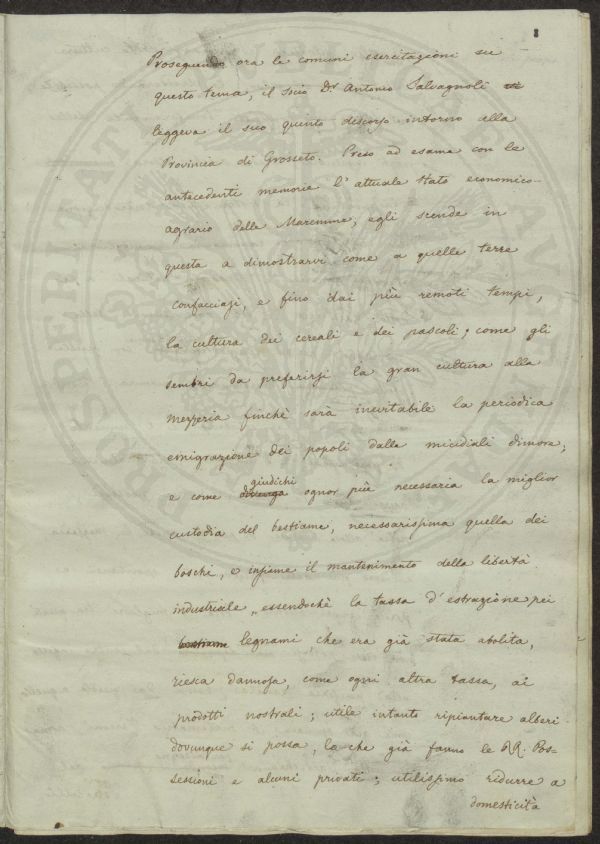 8
Proseguendo ora le comuni esercitazioni su
questo tema, il socio Dr Antonio Salvagnoli
leggeva il suo quinto discorso intorno alla
Provincia di Grosseto. Preso ad esame con le
antecedenti memorie l'attuale stato economico-
agrario delle Maremme, egli scende in
questa a dimostrarvi come a quelle terre
confacciasi, e fino dai più remoti tempi,
la cultura dei cereali e dei pascoli; come gli
sembri da preferirsi la gran cultura alla
mezzeria finchè sarà inevitabile la periodica
emigrazione dei popoli dalle micidiali dimore;
giudichi
e come divenga ognor più necessaria la miglior
custodia del bestiame, necessarissima quella dei
boschi, e insieme il mantenimento della libertà
industriale, essendochè la tassa d'estrazione pei
bestiame legnami, che era già stata abolita,
riesca dannosa, come ogni altra tassa, ai
prodotti nostrali; utile intanto ripiantare alberi
dovunque si possa, lo che già fanno le RR. Pos-
sessioni e alcuni privati; utilissimo ridurre a
domesticità
PROSPERITÀ